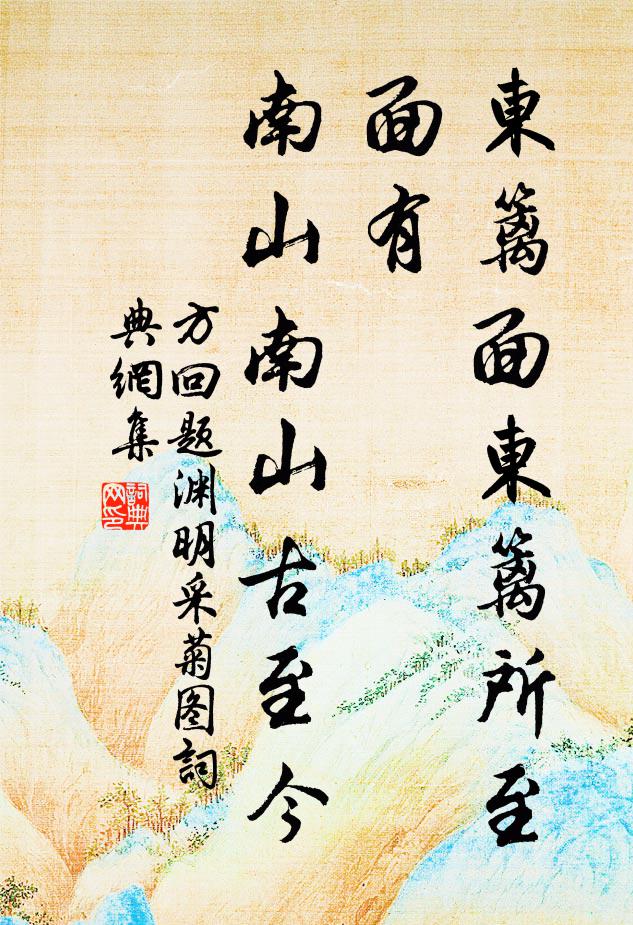 東籬面東籬所至
面有
南山南山古至今
方回题渊明采菊图詞
典網集
詞典
网印